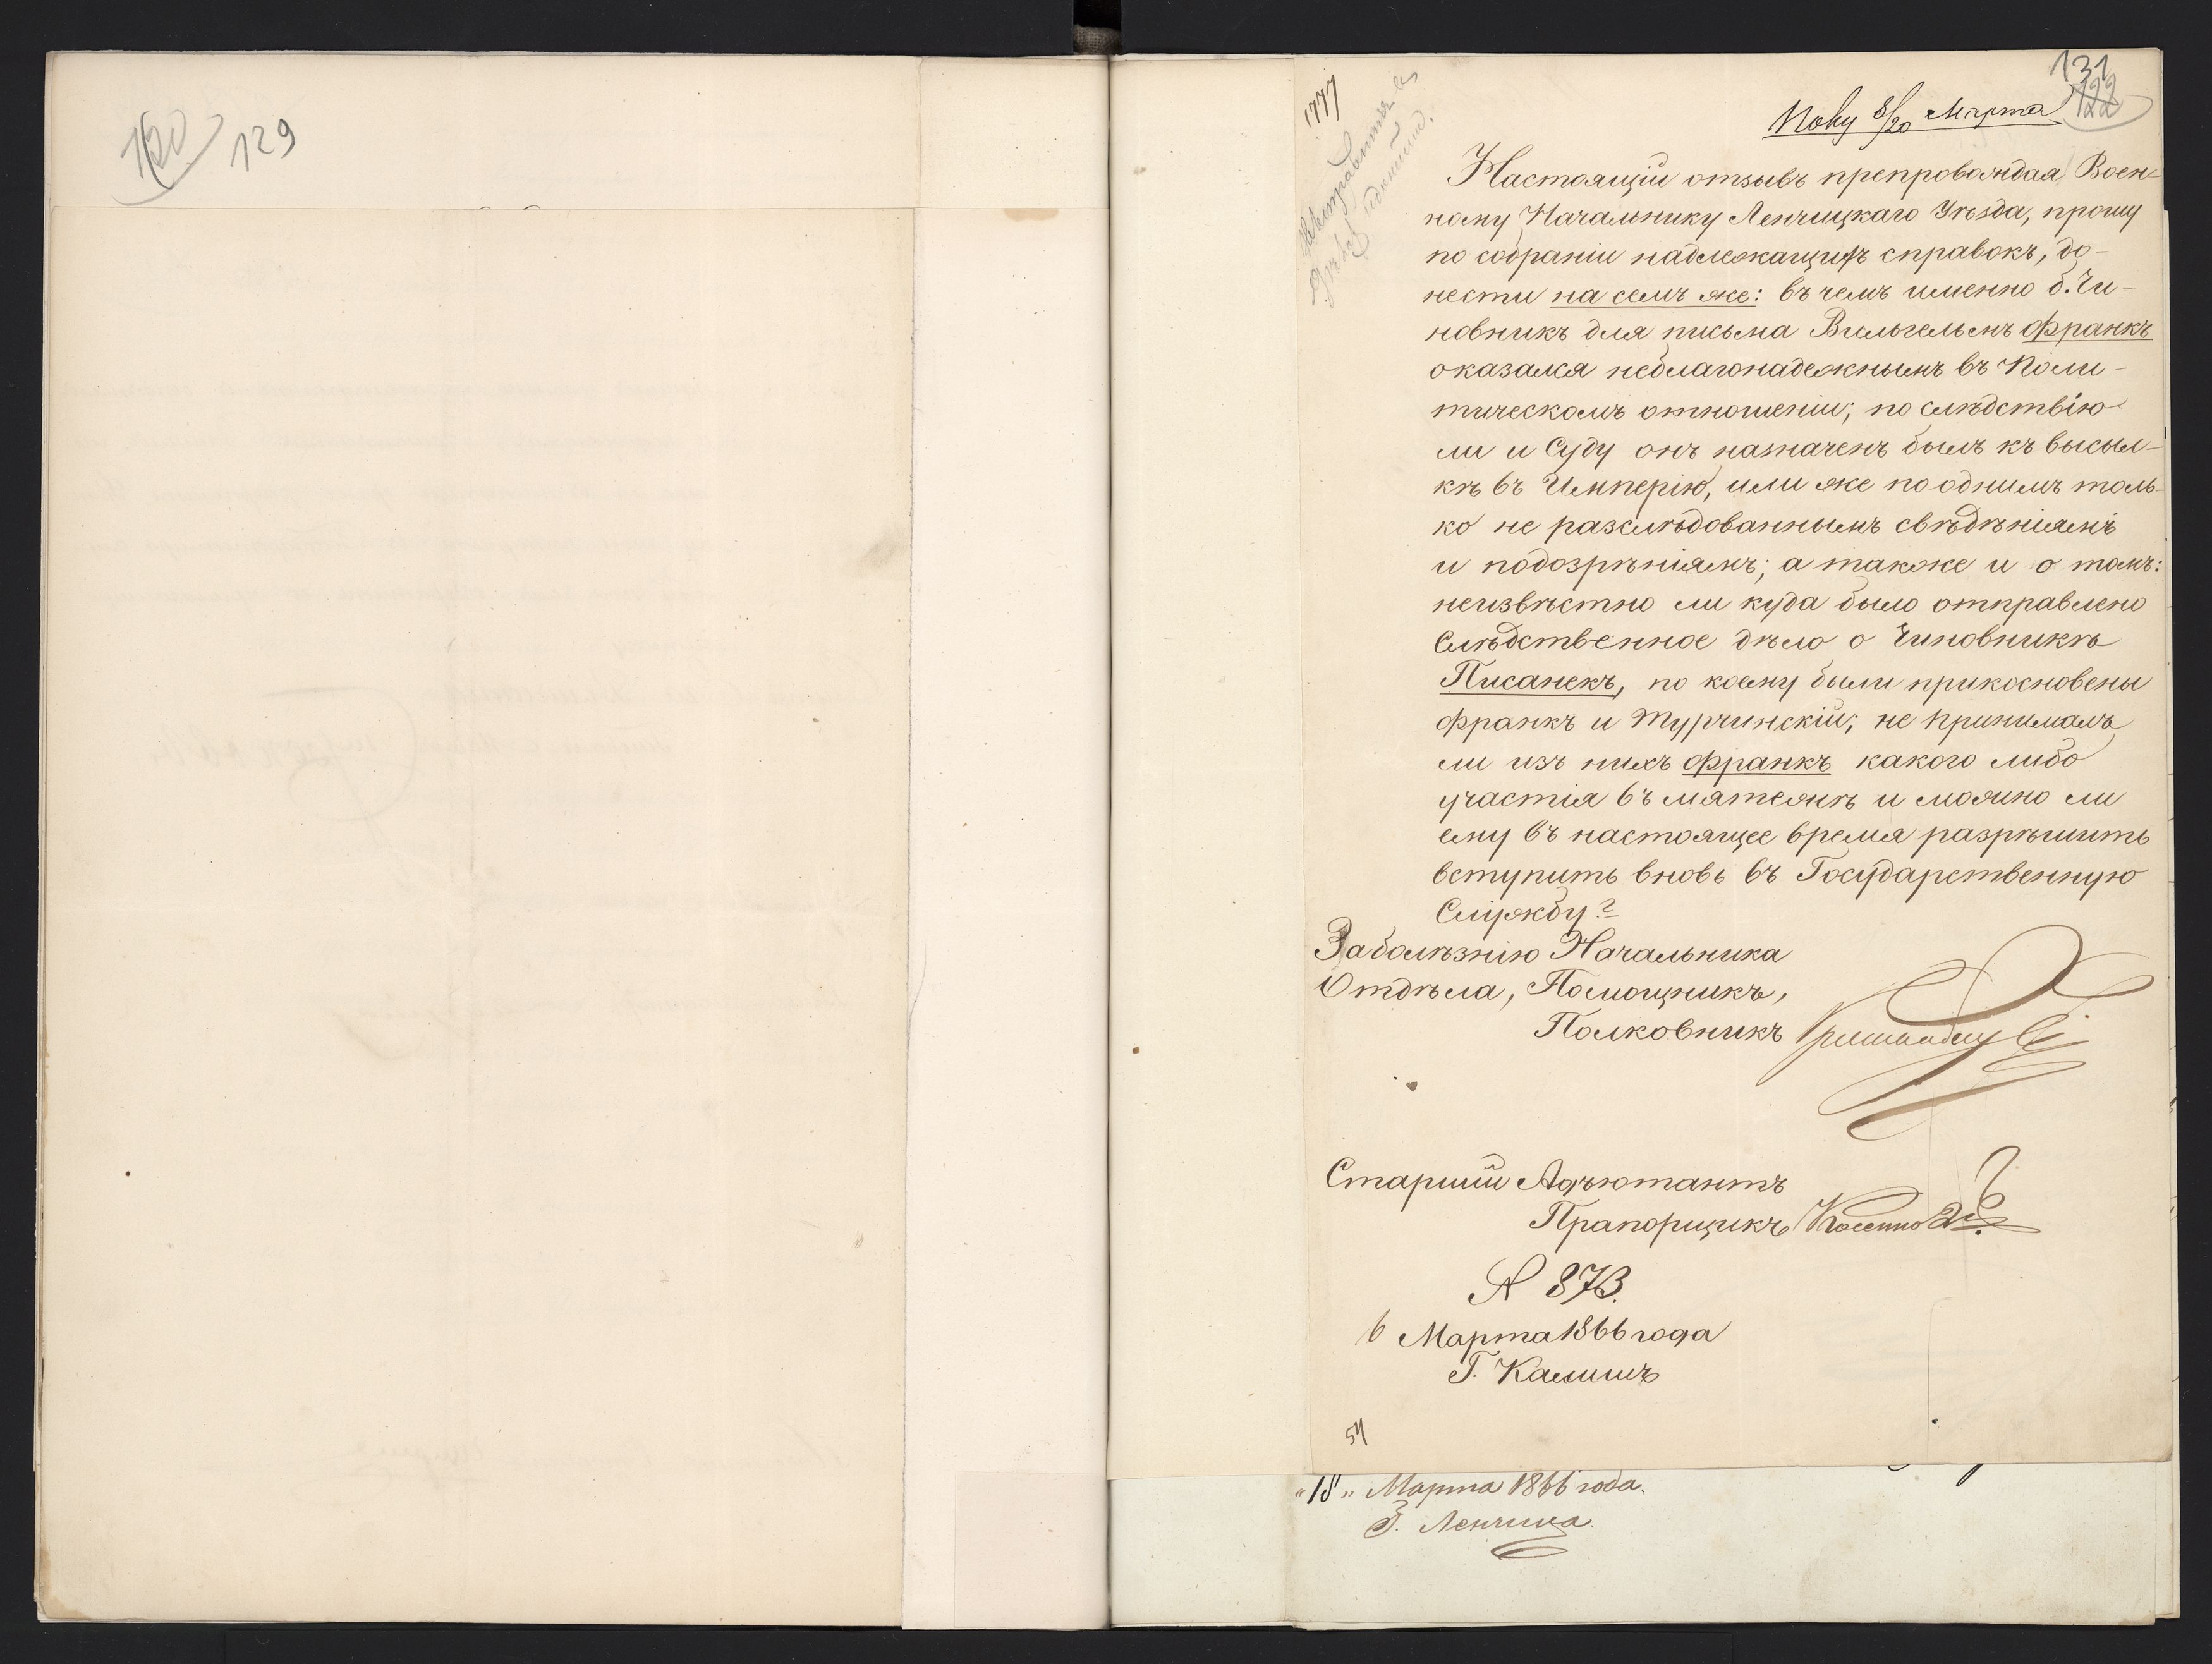 120
129
131
122
1777
8/20 Марта
Настоящій отзывъ препровождая Воен-
ному Начальнику Ленчицкаго Уѣзда, прошу
по собраніи надлежащихъ справокъ, до-
нести на семъ же: въ чемъ именно б. Чи-
новникъ для письма Вильгельмъ Франкъ
оказался неблагонадежнымъ въ Поли-
тическомъ отношеніи; по слѣдствію
ли и Суду онъ назначенъ былъ къ высыл-
кѣ въ Имперію, или же по однимъ толь-
ко не разслѣдованнымъ свѣдѣніямъ
и подозрѣніямъ; а также и о томъ:
неизвѣстно ли куда было отправлено
Слѣдственное дѣло о Чиновникѣ
Писанекъ, по коему были прикосновены
Франкъ и Турчинскій; не принималъ
ли изъ нихъ Франкъ какого либо
участія въ мятежѣ и можно ли
ему въ настоящее время разрѣшить
вступить вновь въ Государственную
Службу?
За болѣзнію Начальника
Отдѣла, Помощникъ,
Полковникъ
Старшій Адъютантъ
Прапорщикъ
№ 873.
6 Марта 1866 года
Г. Калишъ
54
"18" Марта 1866 года.
Г. Ленчица.